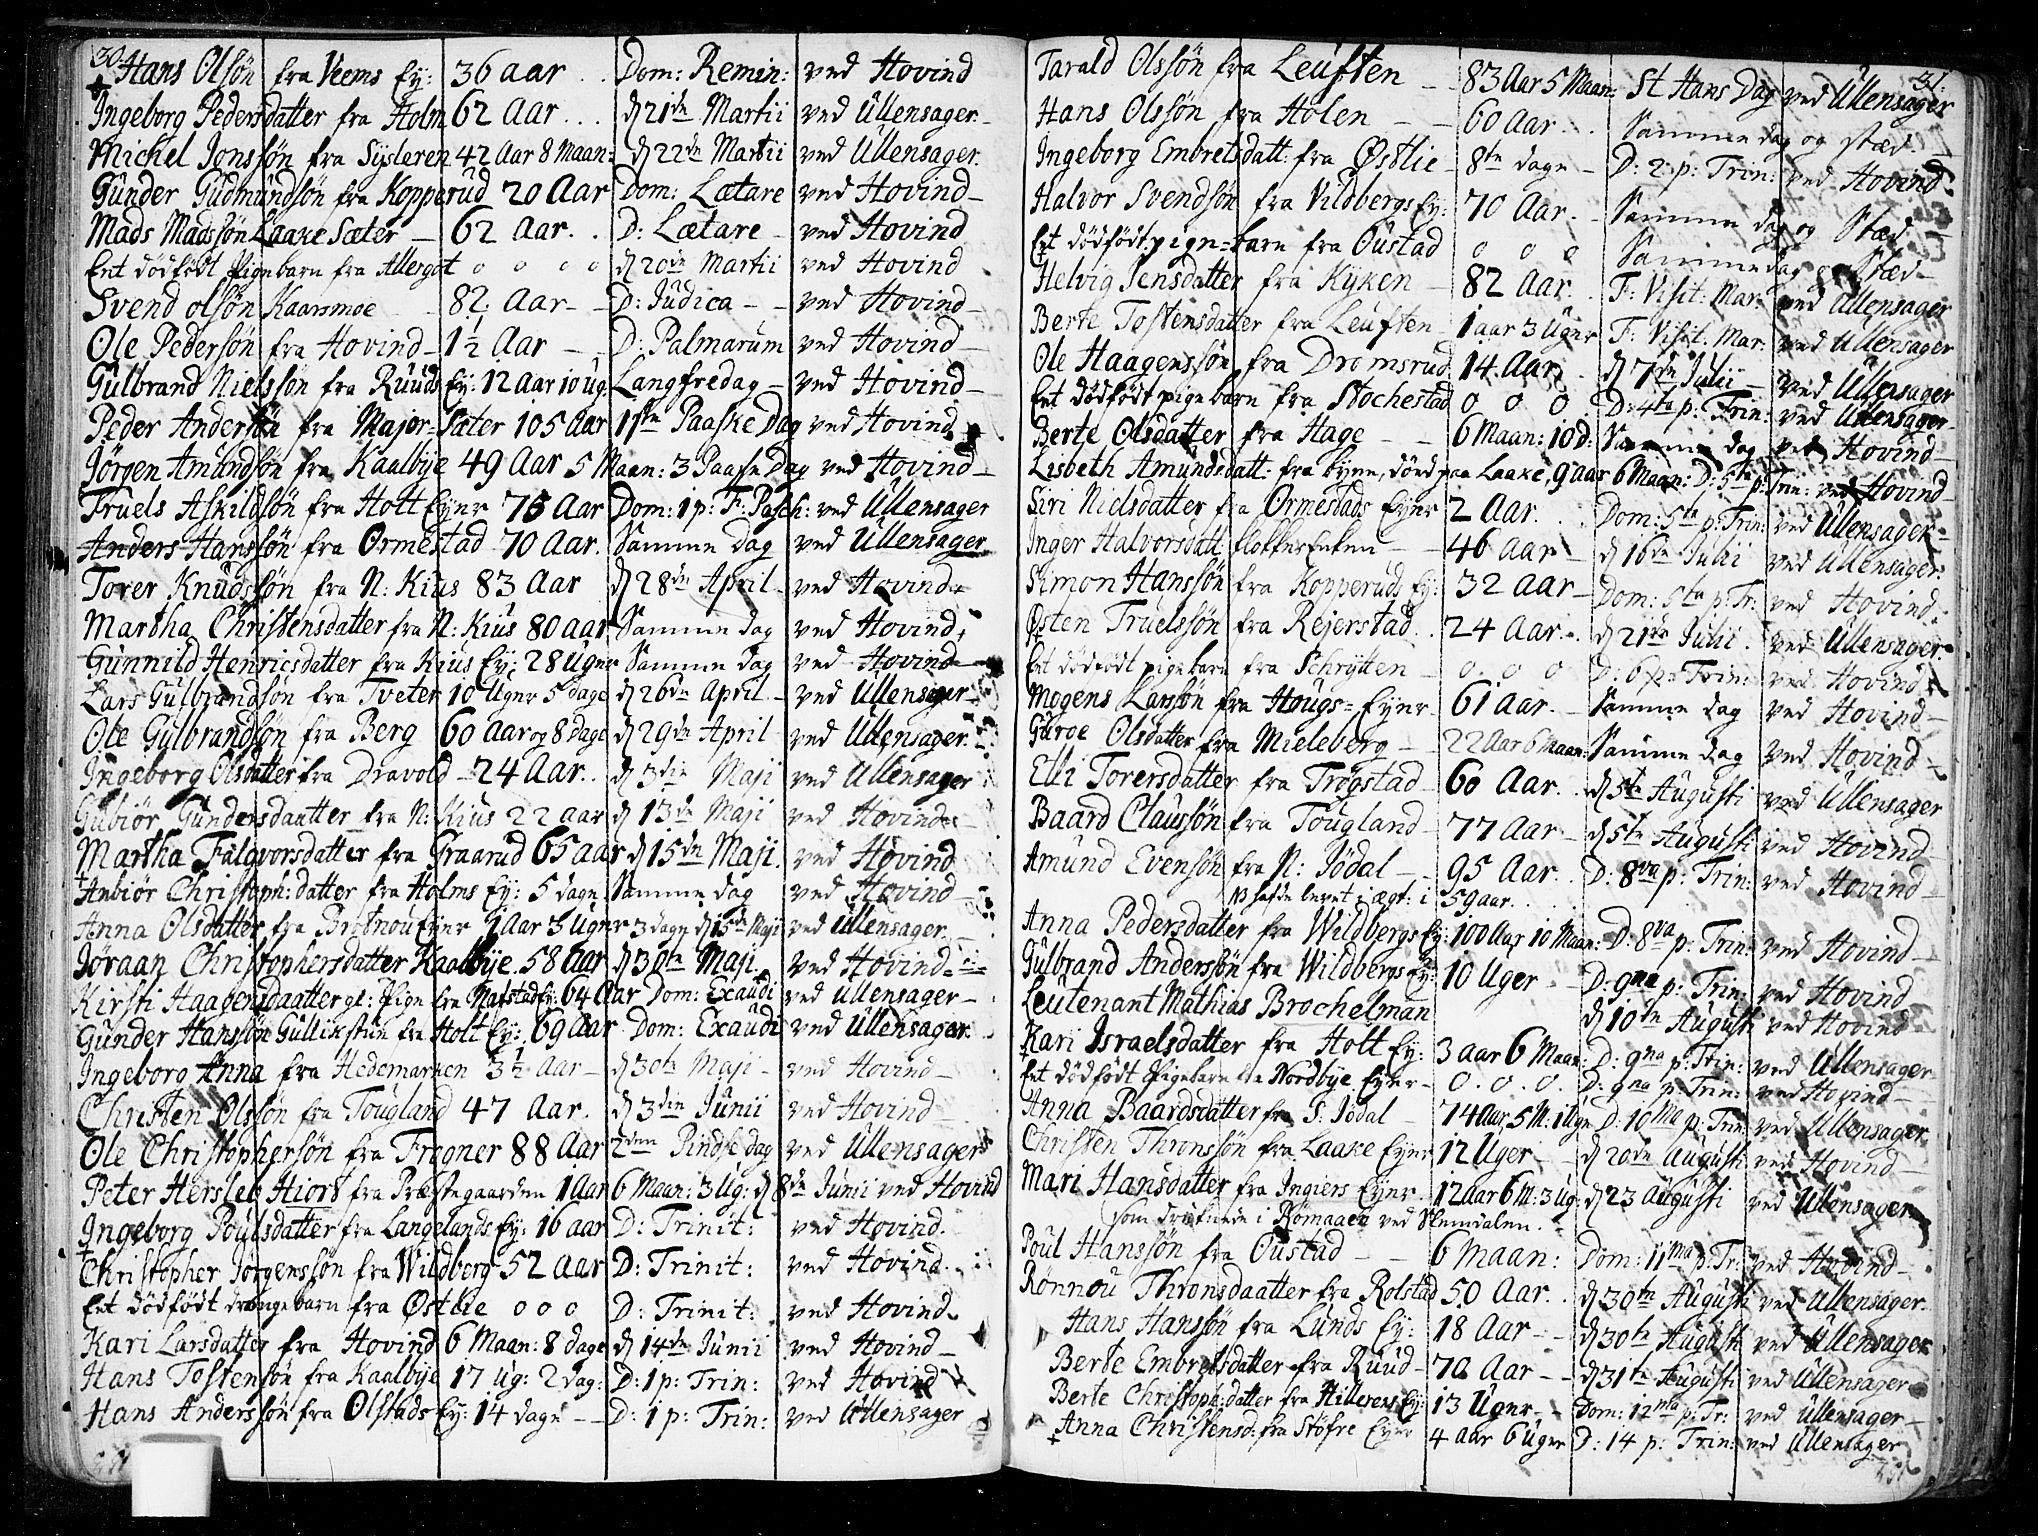 30.
+ Hans Olsön fra Veems Ey: 36 aar . . Dom: Remin: ved Hovind
Ingeborg Pedersdatter fra Holm 62 Aar . . . d 21de Martii ved Ullensager.
Michel Jonssön fra Sysleren 42 Aar 8 Maan: d 22de Martii ved Ullensager.
Gunder Gudmundsön fra Kopperud 20 Aar Dom: Lætare ved Hovind
Mads Madssön Laake Sæter 62 Aar. . D: Lætare ved Hovind
Eet dödfödt Pigebarn fra Allergot o o o o d 20de Martii ved Hovind
Svend Olsön Kaarsmoe 82. Aar D: Judica ved Hovind
Ole Pedersön fra Hovind 1½ Aar D: Palmarum ved Hovind
Gulbrand Nielssön fra Ruuds Ey: 12 Aar 10 ug: Langfredag ved Hovind
Peder Andersön fra Major-Sæter 105 Aar 1ste Paaske Dag ved Hovind
Jörgen Amundsön fra Kaalbye 49 Aar 5 Maan: 3 Paaske Dag ved Hovind
Truels Askildsön fra Holt Eyer 75 Aar Dom: 1 p: F: Pasch: ved Ullensager
Anders Hanssön fra Ormestad 70 Aar. Samme Dag ved Ullensager
Torer Knudssön fra N: Kius 83 Aar d 28de April ved Hovind
Martha Christensdatter fra N: Kius 80 aar. Samme dag ved Hovind
Gunnild Henricsdatter fra Kius Ey: 28 Uger Samme dag ved Hovind
Lars Gulbrandsön fra Tveter 10 Uger 5 dage d 26de April ved Ullensager
Ole Gulbrandsön fra Berg 60 Aar og 8 dage d 29de April ved Ullensager.
Ingeborg Olsdatter fra Dravold 24 Aar. . d 3die Maji ved Ullensager
Gubiör Gundersdaatter fra N: Kius 22 aar d 13de Maji ved Hovind
Martha Falqvorsdatter fra Graarud 65 aar d 15de Maji. ved Hovind
+ Anbiör Christoph: datter fra Holms Ey: 5 dage Samme dag ved Hovind
Anna Olsdatter fra Brotnou Eyer 1 Aar 3 Uger 3 dage d 15de Maji ved Ullensager.
Jöraan Christophersdatter Kaalbye. 58 Aar d 30te Maji ved Hovind
Kirsti Haagensdaatter gl: Pige fra Mafstad Ey: 64 Aar Dom: Exaudi ved Ullensager
Gunder Hanssön Gullikstun fra Holt Ey: 69 aar Dom: Exaudi ved Ullensager.
Ingeborg Anna fra Hedemarken 3½ Aar d 30te Maji ved Hovind
Christen Olssön fra Tougland 47 Aar. d 3die Junii ved Hovind
Ole Christophersön fra Frogner 88 Aar 2den Pindse dag ved Ullensager
Peter Hersleb Hiort fra Præstegaarden 1 Aar 6 Maan: 3 Ug: d 8de Junii ved Hovind
Ingeborg Poulsdatter fra Langelands Ey: 16 aar D: Trinit: ved Hovind.
+ Christopher Jörgenssön fra Wildberg 52 Aar D: Trinit: ved Hovind.
Eet dödfödt drengebarn fra Östlie o o o D: Trinit: ved Hovind.
Kari Larsdatter fra Hovind 6 Maan: 8 dage d 14de Junii ved Hovind
Hans Tostensön fra Kaalbye 17 Ug: 2 dag: D: 1 p: Trin: ved Hovind
Hans Anderssön fra Olstads Ey: 14 dage D: 1 p: Trin: ved Ullensager
31.
Tarald Olssön fra Leusten 83 Aar 5 Maan: St Hans Dag ved Ullensager
Hans Olssön fra Holen 60 Aar . . Samme dag og Stæd.
Ingeborg Embretsdatt: fra Östlie 8te dage D: 2 p: Trin: ved Hovind
Halvor Svendsön fra Vildbergs Ey: 70 Aar. Samme dag og Stæd
Eet dödfödt pige=barn fra Oustad o o o Samme dag og Stæd
Helvig Jensdatter fra Kyken 82 Aar. . F: Visit: Mar: ved Ullensager
Berte Tostensdatter fra Leusten 1 aar 3 Uger F: Visit. Mar. ved Ullensager
Ole Haagenssön fra Dromsrud 14 Aar. d 7de Julii ved Ullensager
Eet dödfödt pigebarn fra Stochestad o o o D: 4ta p: Trin: ved Ullensager
Berte Olsdatter fra Hage 6 Maan: 10 d: Samme dag ved Hovind
Lisbeth Amundsdatt: fra byen, döed paa Laake, 9 aar 6 Maan: D: 5ta p: Trin: ved Hovind
Siri Nielsdatter fra Ormestads Eyer 2 Aar. Dom: 5ta p: Trin: ved Ullensager
Inger Halvorsdatt klokkerEnken 46 Aar d 16de Julii ved Ullensager.
Simon Hanssön fra Kopperuds Ey: 32 Aar Dom: 5ta p: Tr: ved Hovind.
Östen Truelssön fra Rejerstad. 24 Aar. d 21de Julii ved Ullensager.
+ Eet dödfödt pigebarn fra Schrytten o o o D: 6 p: Trin: ved Hovind
Mogens Larssön fra Hougs= Eyer 61 Aar. Samme dag ved Hovind
Guroe Olsdatter fra Mieleberg 22 Aar 6 Maan: Samme dag ved Hovind
Elli Torersdatter fra Trögstad 60 Aar. . d 5te Augusti ved Ullensager
Baard Claussön fra Tougland 77 Aar d 5te Augusti ved Hovind
Amund Evensön fra N: Jödal 95 Aar. . D: 8va p: Trin: ved Hovind
NB hafde levet i ægt: i 59 aar. . .
Anna Pedersdatter fra Wildbergs Ey: 100 Aar 10 Maan: D: 8va p: Trin: ved Hovind
Gulbrand Anderssön fra Wildbergs Ey: 10 Uger D: 9na p: Trin: ved Hovind
Leutenant Mathias Brochelman d 10de Augusti ved Hovind
Kari Israelsdatter fra Holt Ey: 3 aar 6 Maan: D: 9na p: Trin: ved Ullensager
+ Eet dödfödt Pigebarn fra Nordbye Eyer o. o. o. D: 9na p: Trin: ved Hovind
Anna Baardsdatter fra S: Jödal 74 Aar 5 M: 1 Uge D: 10ma p: Trin: ved Ullensager
Christen Thronssön fra Laake Eyer 12 Uger d 20de Augusti ved Hovind
Mari Hansdatter fra Ingiers Eyer. 12 aar 6 M: 3 ug: d 23 Augusti ved Ullensager
som druknede i Römaaen ved Slemdalen.
Poul Hanssön fra Oustad 6 Maan: Dom: 11ma p: Tr: ved Hovind
Rönnou Thronsdaatter fra Rolstad 50 Aar. . d 30te Augusti ved Ullensager.
Hans Hanssön fra Lunds Ey: 18 Aar d 30te Augusti ved Ullensager
Berte Embretsdatter fra Ruud 70 Aar d 31te Augusti ved Ullensager
Berte Christophsdatter fra Hillerens Ey: 13 Uger Dom: 12ma p: Tr: ved Ullensager
+ Anna Christensd: fra Stöfre Eyer 4 aar 6 uger D: 14 p: Trin: ved Ullensager